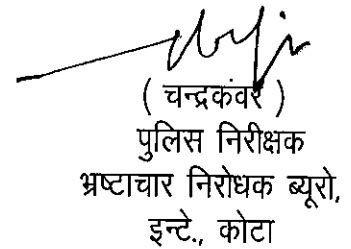 ( चन्द्रकंवर )
पुलिस निरीक्षक
भ्रष्टाचार निरोधक ब्यूरो,
इन्टे., कोटा